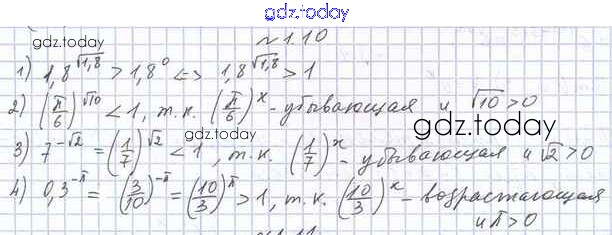 gdz.today
gdz.today
№1.10
1) 1,8^√1,8 > 1,8^0 <=> 1,8^√1,8 > 1
2) (π/6)^√10 < 1, т.к. (π/6)^x - убывающая и √10 > 0
gdz.today
3) 7^-√2 = (1/7)^√2 < 1, т.к. (1/7)^x - убывающая и √2 > 0
4) 0,3^-π = (3/10)^-π = (10/3)^π > 1, т.к. (10/3)^x - возрастающая
и π > 0